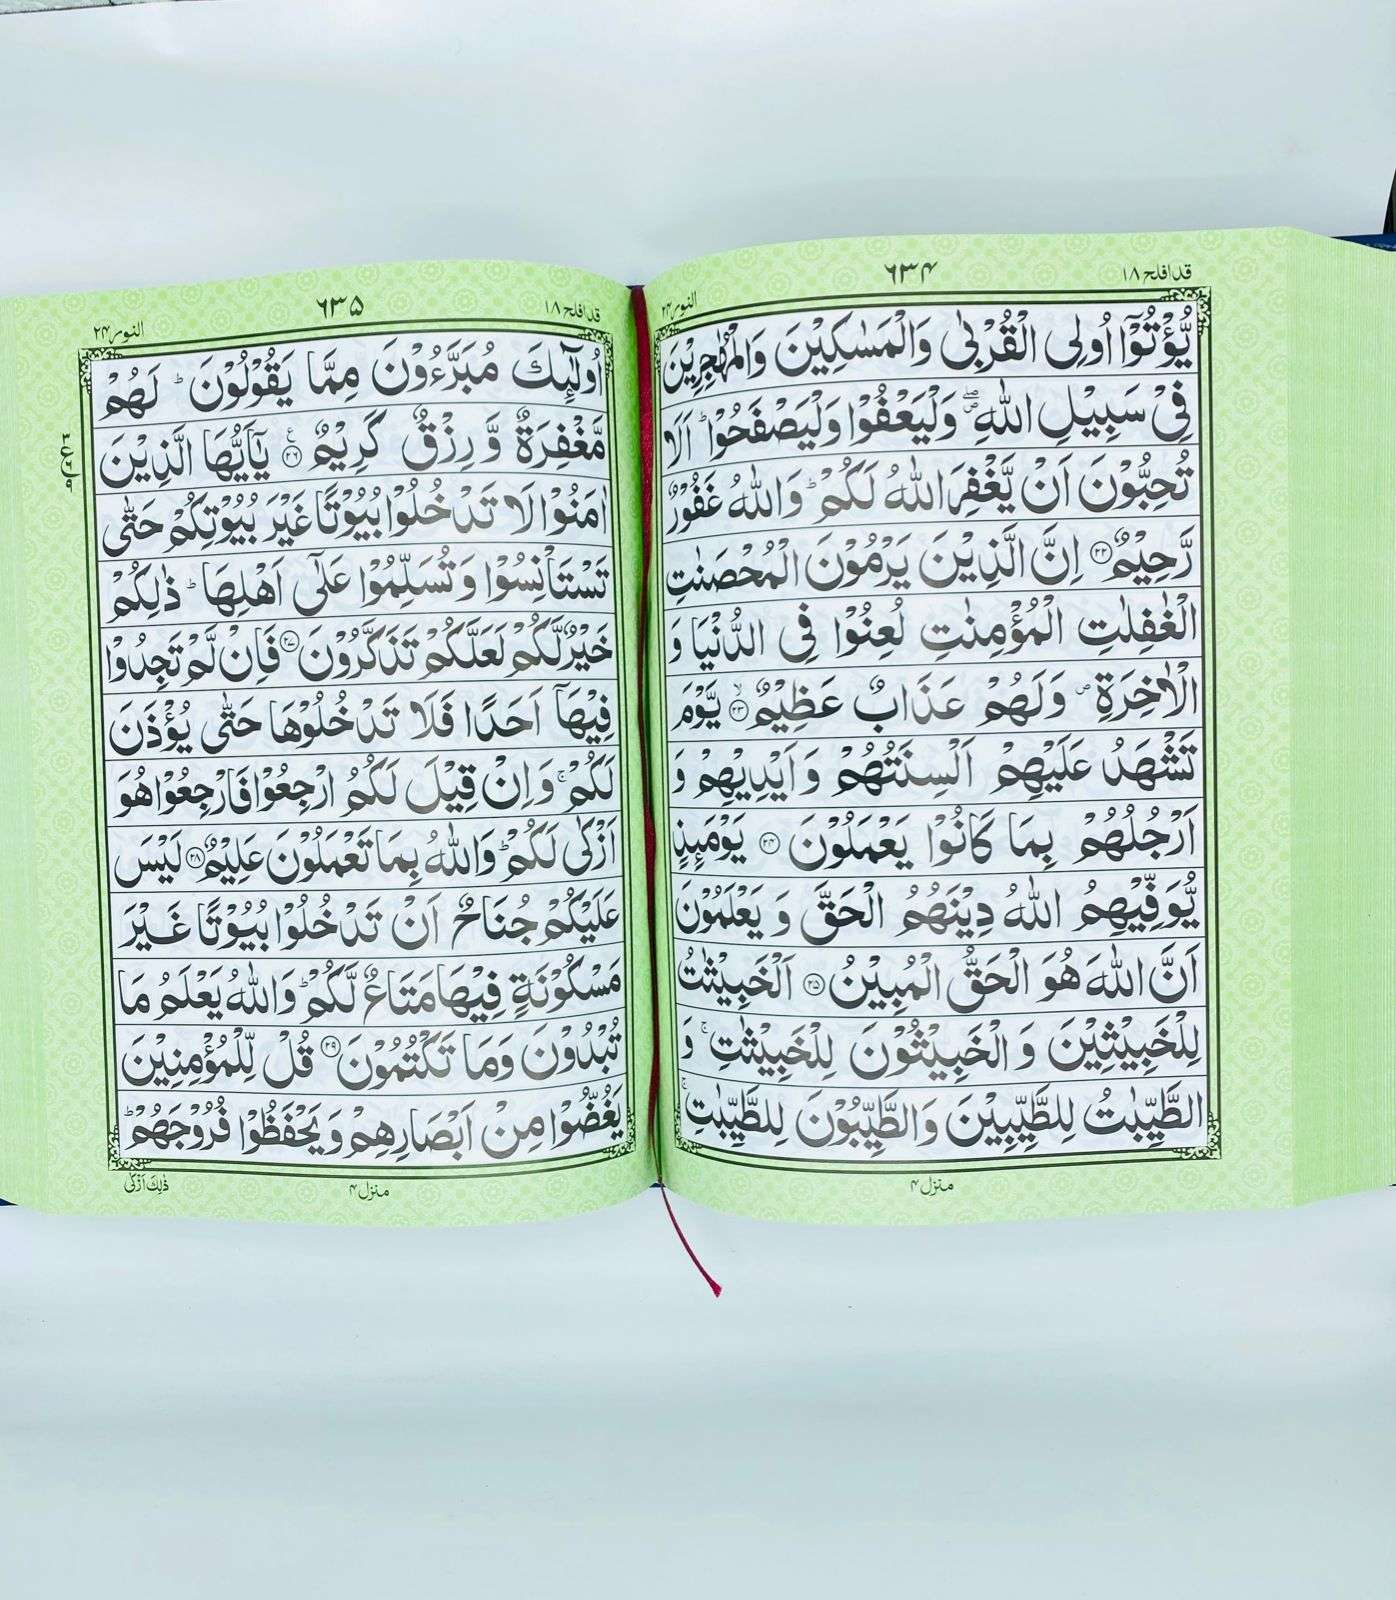 قد افلح ۱۸
۶۳۴
النور ۲۴
يُّؤْتُوْٓا اُولِى الْقُرْبٰى وَالْمَسٰكِيْنَ وَالْمُهٰجِرِيْنَ
فِىْ سَبِيْلِ اللّٰهِ ۖ وَلْيَعْفُوْا وَلْيَصْفَحُوْا ؕ اَلَا
تُحِبُّوْنَ اَنْ يَّغْفِرَ اللّٰهُ لَكُمْ ؕ وَاللّٰهُ غَفُوْرٌ
رَّحِيْمٌ ۝۲۲ اِنَّ الَّذِيْنَ يَرْمُوْنَ الْمُحْصَنٰتِ
الْغٰفِلٰتِ الْمُؤْمِنٰتِ لُعِنُوْا فِى الدُّنْيَا وَ
الْاٰخِرَةِ ۪ وَلَهُمْ عَذَابٌ عَظِيْمٌ ۝۲۳ يَّوْمَ
تَشْهَدُ عَلَيْهِمْ اَلْسِنَتُهُمْ وَ اَيْدِيْهِمْ وَ
اَرْجُلُهُمْ بِمَا كَانُوْا يَعْمَلُوْنَ ۝۲۴ يَوْمَئِذٍ
يُّوَفِّيْهِمُ اللّٰهُ دِيْنَهُمُ الْحَقَّ وَ يَعْلَمُوْنَ
اَنَّ اللّٰهَ هُوَ الْحَقُّ الْمُبِيْنُ ۝۲۵ اَلْخَبِيْثٰتُ
لِلْخَبِيْثِيْنَ وَ الْخَبِيْثُوْنَ لِلْخَبِيْثٰتِ ۚ وَ
الطَّيِّبٰتُ لِلطَّيِّبِيْنَ وَالطَّيِّبُوْنَ لِلطَّيِّبٰتِ ۚ
منزل ۴
قد افلح ۱۸
۶۳۵
النور ۲۴
اُولٰٓئِكَ مُبَرَّءُوْنَ مِمَّا يَقُوْلُوْنَ ؕ لَهُمْ
مَّغْفِرَةٌ وَّ رِزْقٌ كَرِيْمٌ ۝۲۶ يٰۤاَيُّهَا الَّذِيْنَ
اٰمَنُوْا لَا تَدْخُلُوْا بُيُوْتًا غَيْرَ بُيُوْتِكُمْ حَتّٰى
تَسْتَاْنِسُوْا وَ تُسَلِّمُوْا عَلٰٓى اَهْلِهَا ؕ ذٰلِكُمْ
خَيْرٌ لَّكُمْ لَعَلَّكُمْ تَذَكَّرُوْنَ ۝۲۷ فَاِنْ لَّمْ تَجِدُوْا
فِيْهَاۤ اَحَدًا فَلَا تَدْخُلُوْهَا حَتّٰى يُؤْذَنَ
لَكُمْ ۚ وَ اِنْ قِيْلَ لَكُمُ ارْجِعُوْا فَارْجِعُوْا هُوَ
اَزْكٰى لَكُمْ ؕ وَاللّٰهُ بِمَا تَعْمَلُوْنَ عَلِيْمٌ ۝۲۸ لَيْسَ
عَلَيْكُمْ جُنَاحٌ اَنْ تَدْخُلُوْا بُيُوْتًا غَيْرَ
مَسْكُوْنَةٍ فِيْهَا مَتَاعٌ لَّكُمْ ؕ وَاللّٰهُ يَعْلَمُ مَا
تُبْدُوْنَ وَمَا تَكْتُمُوْنَ ۝۲۹ قُلْ لِّلْمُؤْمِنِيْنَ
يَغُضُّوْا مِنْ اَبْصَارِهِمْ وَ يَحْفَظُوْا فُرُوْجَهُمْ ؕ
منزل ۴
ذٰلِكَ اَزْكٰى